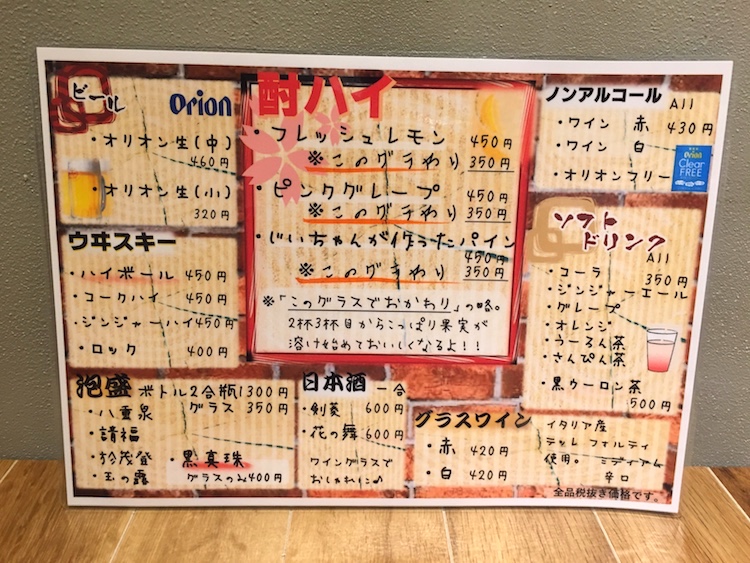 ビール
Orion
・オリオン生(中)
460円
・オリオン生(小)
320円
ウヰスキー
・ハイボール 450円
・コークハイ 450円
・ジンジャーハイ 450円
・ロック 400円
酎ハイ
・フレッシュレモン 450円
※このグラわり 350円
・ピンクグレープ 450円
※このグラわり 350円
・じいちゃんが作ったパイン
450円
※このグラわり 350円
※「このグラスでおかわり」の略。
2杯3杯目からこっぱり果実が
溶け始めておいしくなるよ!!
ノンアルコール
All
・ワイン 赤 430円
・ワイン 白
・オリオンフリー
Orion
Clear
FREE
ソフト
ドリンク
All
・コーラ 350円
・ジンジャーエール
・グレープ
・オレンジ
・うーろん茶
・さんぴん茶
・黒ウーロン茶
500円
泡盛 ボトル2合瓶1300円
グラス 350円
・八重泉
・請福
・於茂登
・玉の露
・黒真珠
グラスのみ400円
日本酒 一合
・剣菱 600円
・花の舞 600円
ワイングラスで
おしゃれに♪
グラスワイン
・赤 420円
・白 420円
イタリア産
テッレ フォルティ
使用。 ミディアム
辛口
全品税抜き価格です。